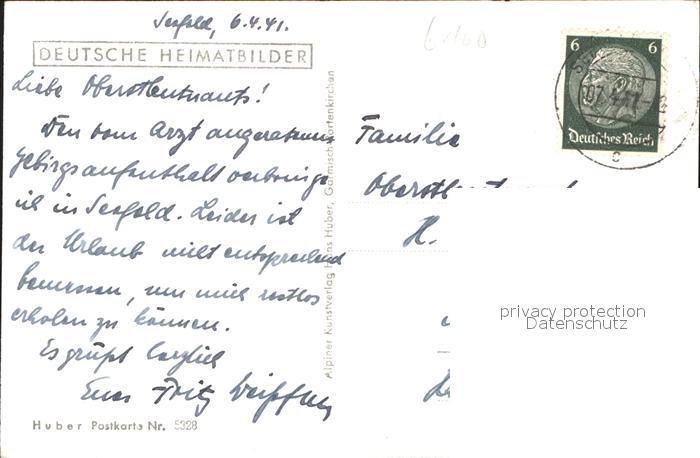 Seefeld, 6.4.41.
DEUTSCHE HEIMATBILDER
Liebe Oberstleutnants!
Den vom Arzt angeratenen
Gebirgsaufenthalt verbringe
ich in Seefeld. Leider ist
der Urlaub nicht entsprechend
bemessen, um mich restlos
erholen zu können.
Es grüßt herzlich
Euer Fritz
Huber Postkarte Nr. 5328
Alpiner Kunstverlag Hans Huber, Garmisch-Partenkirchen
6 6
Deutsches Reich
c
Familie
H.
privacy protection
Datenschutz